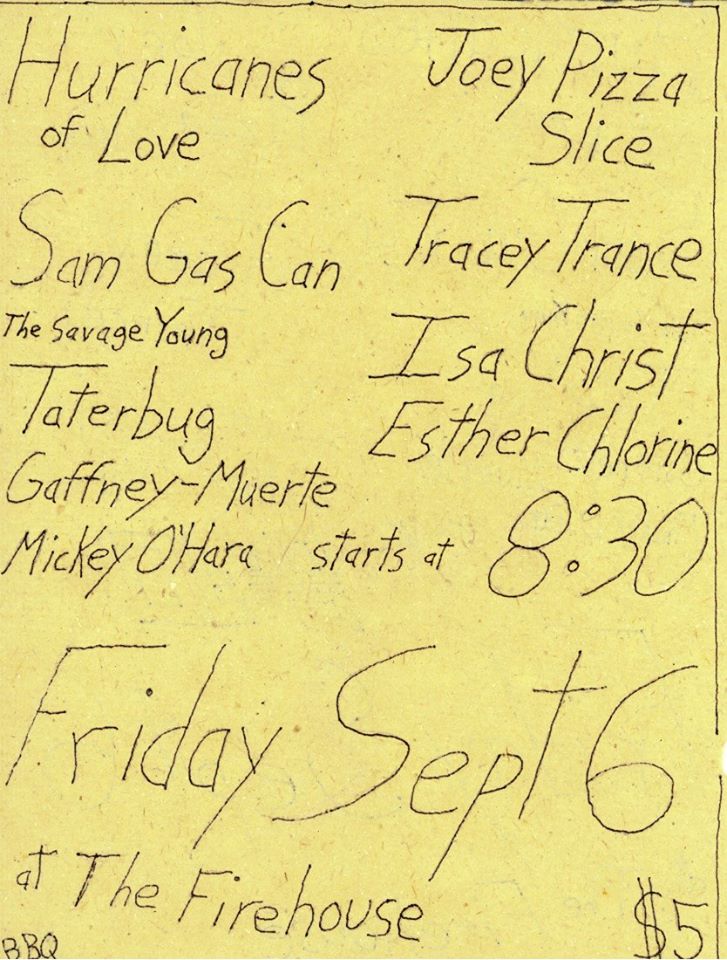 Hurricanes
of Love
Joey Pizza
Slice
Sam Gas Can
Tracey Trance
The Savage Young
Taterbug
Isa Christ
Esther Chlorine
Gaffney-Muerte
Mickey O'Hara
starts at 8:30
Friday Sept 6
at The Firehouse
BBQ
$5